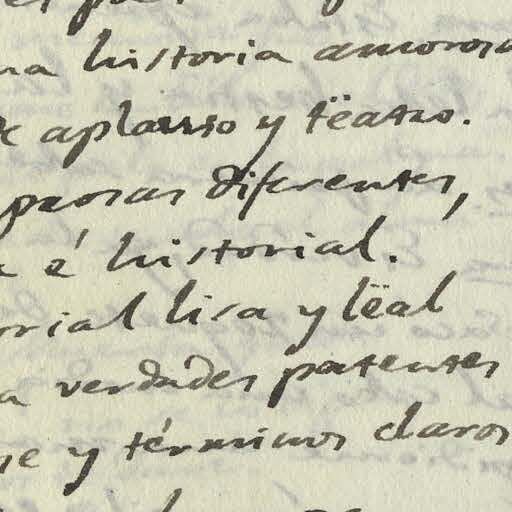 na historia amorosa
de aplauso y tëatro.
prosas diferentes,
a é historial.
orial lisa y lëal
a verdades patentes
se y términos claros